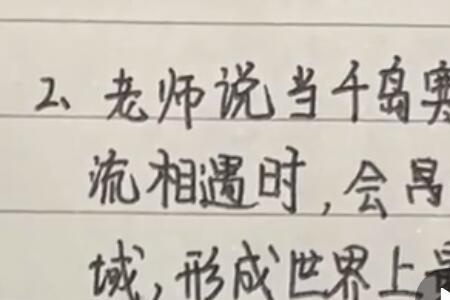 2、老师说当千岛寒
流相遇时,会
域,形成世界上最